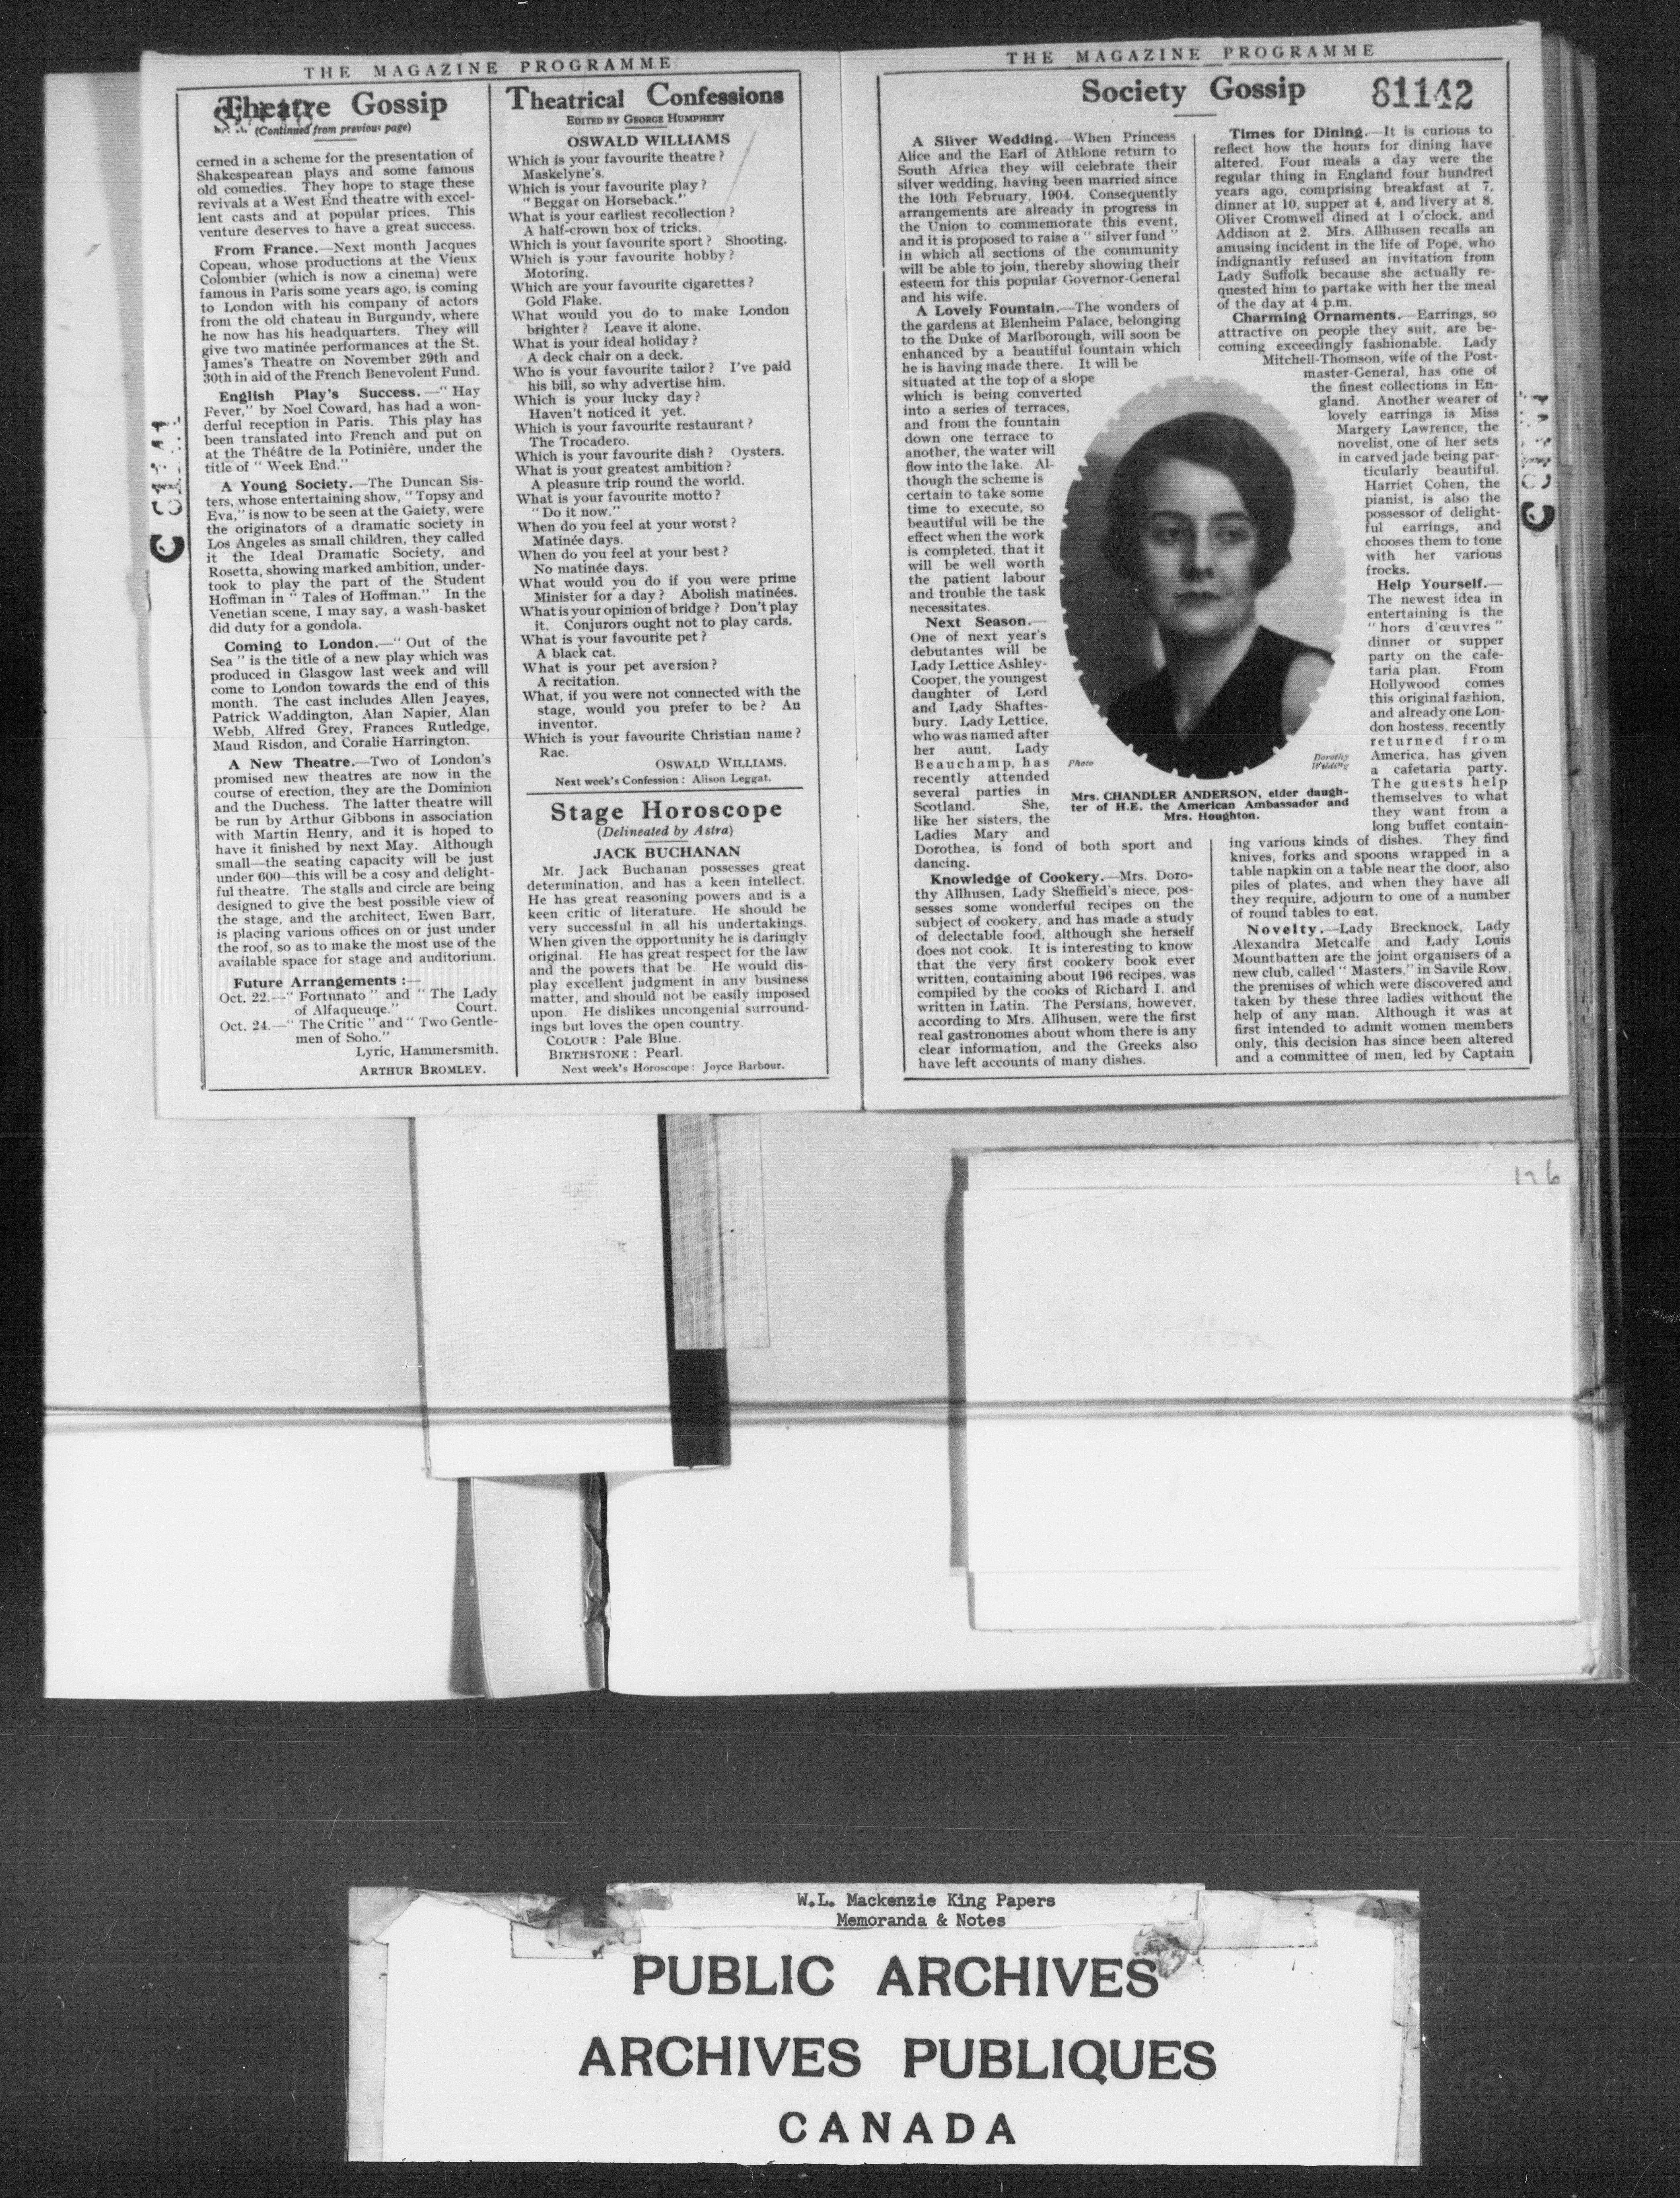 THE MAGAZINE PROGRAMME
Theatre Gossip
(Continued from previous page)
cerned in a scheme for the presentation of
Shakespearean plays and some famous
old comedies. They hope to stage these
revivals at a West End theatre with excel-
lent casts and at popular prices. This
venture deserves to have a great success.
From France.—Next month Jacques
Copeau, whose productions at the Vieux
Colombier (which is now a cinema) were
famous in Paris some years ago, is coming
to London with his company of actors
from the old chateau in Burgundy, where
he now has his headquarters. They will
give two matinée performances at the St.
James's Theatre on November 29th and
30th in aid of the French Benevolent Fund.
English Play's Success.—" Hay
Fever," by Noel Coward, has had a won-
derful reception in Paris. This play has
been translated into French and put on
at the Théâtre de la Potinière, under the
title of " Week End."
A Young Society.—The Duncan Sis-
ters, whose entertaining show, " Topsy and
Eva," is now to be seen at the Gaiety, were
the originators of a dramatic society in
Los Angeles as small children, they called
it the Ideal Dramatic Society, and
Rosetta, showing marked ambition, under-
took to play the part of the Student
Hoffman in " Tales of Hoffman." In the
Venetian scene, I may say, a wash-basket
did duty for a gondola.
Coming to London.—" Out of the
Sea " is the title of a new play which was
produced in Glasgow last week and will
come to London towards the end of this
month. The cast includes Allen Jeayes,
Patrick Waddington, Alan Napier, Alan
Webb, Alfred Grey, Frances Rutledge,
Maud Risdon, and Coralie Harrington.
A New Theatre.—Two of London's
promised new theatres are now in the
course of erection, they are the Dominion
and the Duchess. The latter theatre will
be run by Arthur Gibbons in association
with Martin Henry, and it is hoped to
have it finished by next May. Although
small—the seating capacity will be just
under 600—this will be a cosy and delight-
ful theatre. The stalls and circle are being
designed to give the best possible view of
the stage, and the architect, Ewen Barr,
is placing various offices on or just under
the roof, so as to make the most use of the
available space for stage and auditorium.
Future Arrangements :—
Oct. 22.—" Fortunato " and " The Lady
of Alfaqueuqe." Court.
Oct. 24.—" The Critic " and " Two Gentle-
men of Soho."
Lyric, Hammersmith.
ARTHUR BROMLEY.
Theatrical Confessions
EDITED BY GEORGE HUMPHERY
OSWALD WILLIAMS
Which is your favourite theatre ?
Maskelyne's.
Which is your favourite play ?
" Beggar on Horseback."
What is your earliest recollection ?
A half-crown box of tricks.
Which is your favourite sport ? Shooting.
Which is your favourite hobby ?
Motoring.
Which are your favourite cigarettes ?
Gold Flake.
What would you do to make London
brighter ? Leave it alone.
What is your ideal holiday ?
A deck chair on a deck.
Who is your favourite tailor ? I've paid
his bill, so why advertise him.
Which is your lucky day ?
Haven't noticed it yet.
Which is your favourite restaurant ?
The Trocadero.
Which is your favourite dish ? Oysters.
What is your greatest ambition ?
A pleasure trip round the world.
What is your favourite motto ?
" Do it now."
When do you feel at your worst ?
Matinée days.
When do you feel at your best ?
No matinée days.
What would you do if you were prime
Minister for a day ? Abolish matinées.
What is your opinion of bridge ? Don't play
it. Conjurors ought not to play cards.
What is your favourite pet ?
A black cat.
What is your pet aversion ?
A recitation.
What, if you were not connected with the
stage, would you prefer to be ? An
inventor.
Which is your favourite Christian name ?
Rae.
OSWALD WILLIAMS.
Next week's Confession : Alison Leggat.
Stage Horoscope
(Delineated by Astra)
JACK BUCHANAN
Mr. Jack Buchanan possesses great
determination, and has a keen intellect.
He has great reasoning powers and is a
keen critic of literature. He should be
very successful in all his undertakings.
When given the opportunity he is daringly
original. He has great respect for the law
and the powers that be. He would dis-
play excellent judgment in any business
matter, and should not be easily imposed
upon. He dislikes uncongenial surround-
ings but loves the open country.
COLOUR : Pale Blue.
BIRTHSTONE : Pearl.
Next week's Horoscope : Joyce Barbour.
THE MAGAZINE PROGRAMME
Society Gossip
81142
A Silver Wedding.—When Princess
Alice and the Earl of Athlone return to
South Africa they will celebrate their
silver wedding, having been married since
the 10th February, 1904. Consequently
arrangements are already in progress in
the Union to commemorate this event,
and it is proposed to raise a " silver fund "
in which all sections of the community
will be able to join, thereby showing their
esteem for this popular Governor-General
and his wife.
A Lovely Fountain.—The wonders of
the gardens at Blenheim Palace, belonging
to the Duke of Marlborough, will soon be
enhanced by a beautiful fountain which
he is having made there. It will be
situated at the top of a slope
which is being converted
into a series of terraces,
and from the fountain
down one terrace to
another, the water will
flow into the lake. Al-
though the scheme is
certain to take some
time to execute, so
beautiful will be the
effect when the work
is completed, that it
will be well worth
the patient labour
and trouble the task
necessitates.
Next Season.—
One of next year's
debutantes will be
Lady Lettice Ashley-
Cooper, the youngest
daughter of Lord
and Lady Shaftes-
bury. Lady Lettice,
who was named after
her aunt, Lady
Beauchamp, has
recently attended
several parties in
Scotland. She,
like her sisters, the
Ladies Mary and
Dorothea, is fond of both sport and
dancing.
Knowledge of Cookery.—Mrs. Doro-
thy Allhusen, Lady Sheffield's niece, pos-
sesses some wonderful recipes on the
subject of cookery, and has made a study
of delectable food, although she herself
does not cook. It is interesting to know
that the very first cookery book ever
written, containing about 196 recipes, was
compiled by the cooks of Richard I. and
written in Latin. The Persians, however,
according to Mrs. Allhusen, were the first
real gastronomes about whom there is any
clear information, and the Greeks also
have left accounts of many dishes.
Photo
Dorothy
Wilding
Mrs. CHANDLER ANDERSON, elder daugh-
ter of H.E. the American Ambassador and
Mrs. Houghton.
Times for Dining.—It is curious to
reflect how the hours for dining have
altered. Four meals a day were the
regular thing in England four hundred
years ago, comprising breakfast at 7,
dinner at 10, supper at 4, and livery at 8.
Oliver Cromwell dined at 1 o'clock, and
Addison at 2. Mrs. Allhusen recalls an
amusing incident in the life of Pope, who
indignantly refused an invitation from
Lady Suffolk because she actually re-
quested him to partake with her the meal
of the day at 4 p.m.
Charming Ornaments.—Earrings, so
attractive on people they suit, are be-
coming exceedingly fashionable. Lady
Mitchell-Thomson, wife of the Post-
master-General, has one of
the finest collections in En-
gland. Another wearer of
lovely earrings is Miss
Margery Lawrence, the
novelist, one of her sets
in carved jade being par-
ticularly beautiful.
Harriet Cohen, the
pianist, is also the
possessor of delight-
ful earrings, and
chooses them to tone
with her various
frocks.
Help Yourself.—
The newest idea in
entertaining is the
" hors d'œuvres "
dinner or supper
party on the cafe-
taria plan. From
Hollywood comes
this original fashion,
and already one Lon-
don hostess, recently
returned from
America, has given
a cafetaria party.
The guests help
themselves to what
they want from a
long buffet contain-
ing various kinds of dishes. They find
knives, forks and spoons wrapped in a
table napkin on a table near the door, also
piles of plates, and when they have all
they require, adjourn to one of a number
of round tables to eat.
Novelty.—Lady Brecknock, Lady
Alexandra Metcalfe and Lady Louis
Mountbatten are the joint organisers of a
new club, called " Masters," in Savile Row,
the premises of which were discovered and
taken by these three ladies without the
help of any man. Although it was at
first intended to admit women members
only, this decision has since been altered
and a committee of men, led by Captain
126
W.L. Mackenzie King Papers
Memoranda & Notes
PUBLIC ARCHIVES
ARCHIVES PUBLIQUES
CANADA